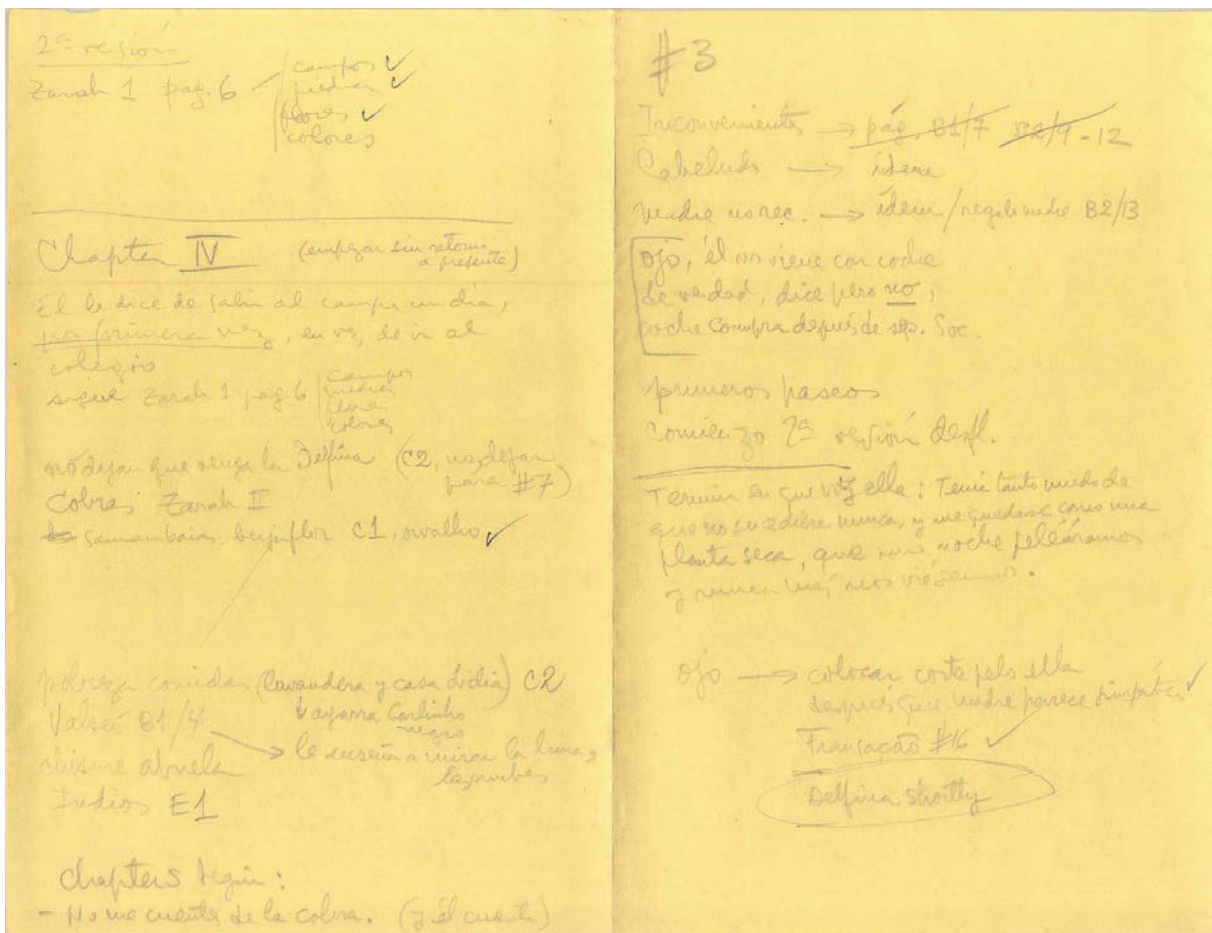 2ª versión
Zarah 1 pag. 6
campos ✓
piedras ✓
flores ✓
colores
Chapter IV (empezar sin retorno
a presente)
El le dice de salir al campo un día,
por primera vez, en vez de ir al
colegio
sigue Zarah 1 pag 6
campos
piedras
flores
colores
no dejan que venga la Delfina (C2, no, dejar
para #7)
Cobras Zarah II
samambaias, beijaflor C1, orvalho ✓
pobreza comidas (lavandera y casa Lidia) C2
agarra Carlinho
negro
Valseé B1/4
le enseña a mirar la luna y
las nubes
chisme abuela
Indios E1
Chapters begin:
- No me cuente de la cobra. (y él cuenta)
#3
Inconvenientes → pág. B1/7 - 12
Cabeludo → idem
madre no rec. → idem / regalo madre B2/13
ojo, él no viene con coche
de verdad, dice pero no,
coche compra después de sep. Soc.
primeros paseos
comienzo 2ª versión desfl.
Termin en que voz ella: Tenía tanto miedo de
que no sucediera nunca, y me quedase como una
planta seca, que una noche peleáramos
y nunca más nos viésemos.
ojo → colocar corte pelo ella
después que madre parece simpática ✓
#16 ✓
Delfina Shortly